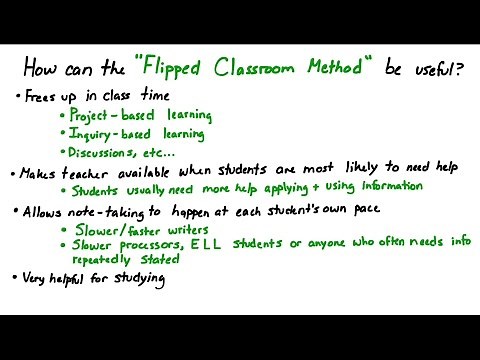 How can the "Flipped Classroom Method" be useful?
• Frees up in class time
• Project-based learning
• Inquiry-based learning
• Discussions, etc...
• Makes teacher available when students are most likely to need help
• Students usually need more help applying + using information
• Allows note-taking to happen at each student's own pace
• Slower/faster writers
• Slower processors, ELL students or anyone who often needs info
repeatedly stated
• Very helpful for studying